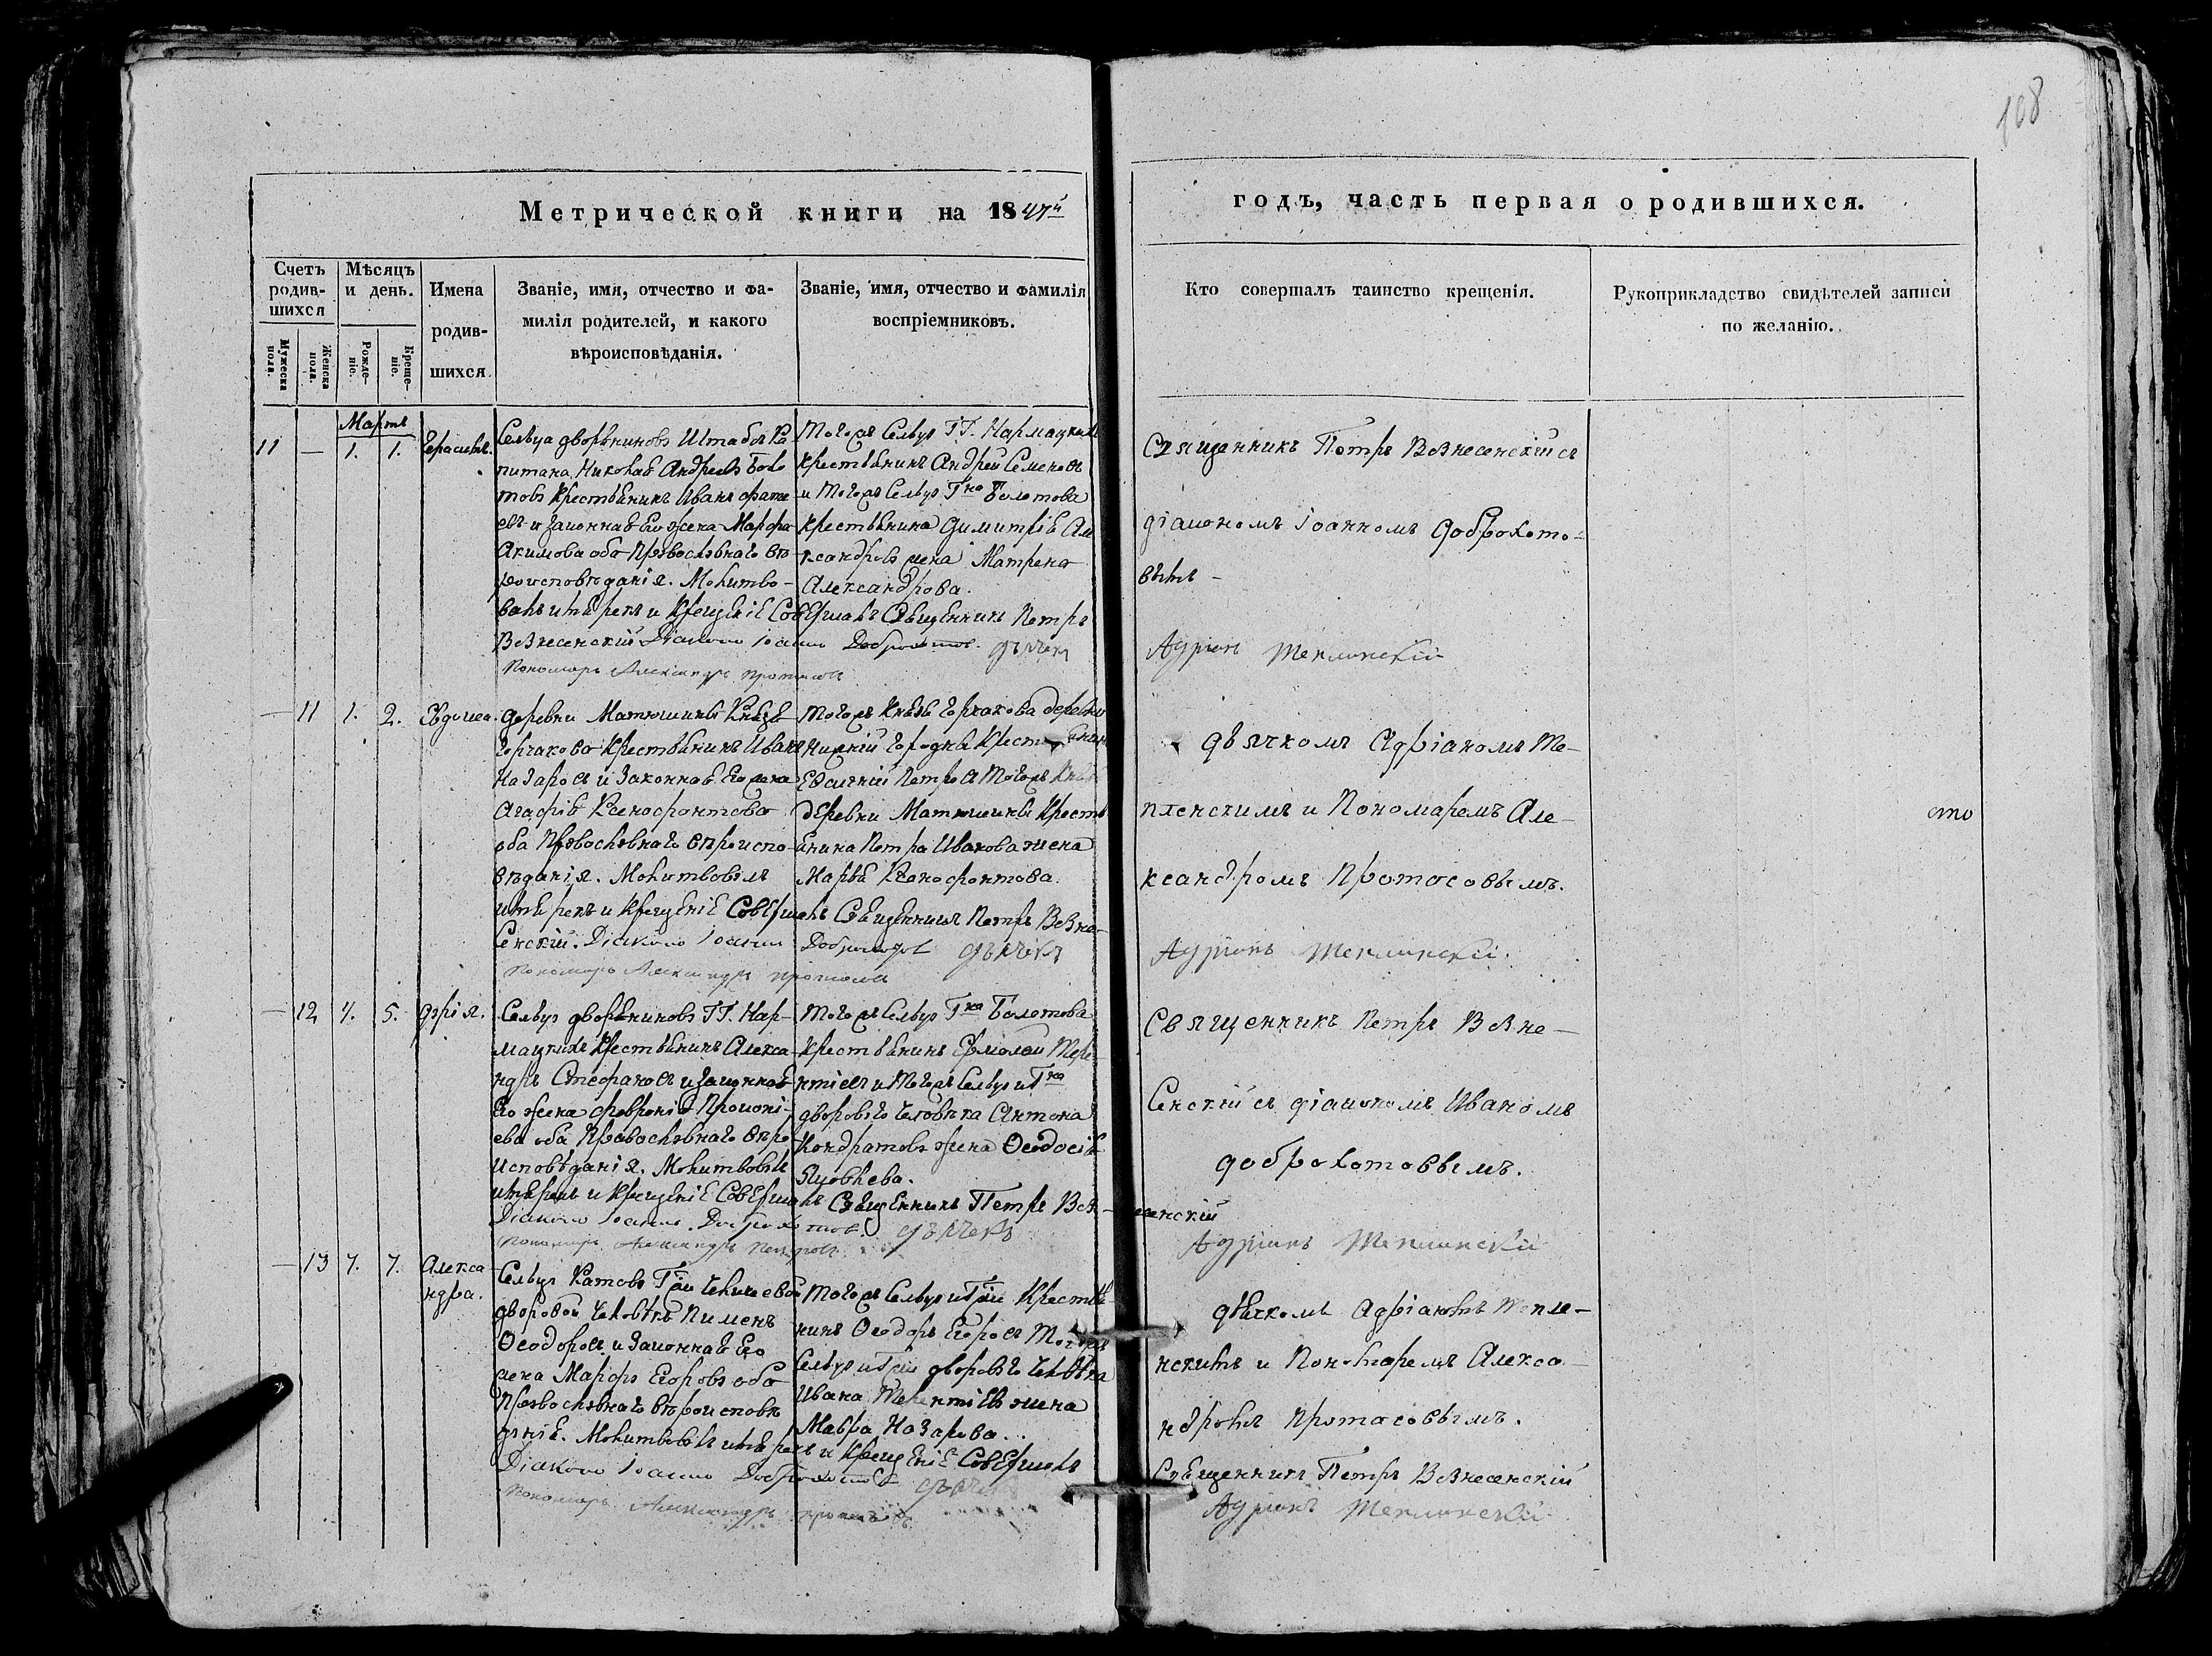 108
Метрической книги на 1847й
годъ, часть первая о родившихся.
Счетъ родив-шихся
Мѣсяцъ и день.
Имена родив-шихся.
Званіе, имя, отчество и фа-
милія родителей, и какого
вѣроисповѣданія.
Званіе, имя, отчество и фамилія
воспріемниковъ.
Кто совершалъ таинство крещенія.
Рукоприкладство свидѣтелей записи
по желанію.
Мужеска пола.
Женска пола.
Рожде-ніе.
Креще-ніе.
Мартъ
11 — 1. 1. Герасимъ.
Сельца дворяниновъ Штабсъ Ка
питана Николая Андреева Боло
това крестьянинъ Иванъ
евъ и законная его жена Марфа
Акимова оба православнаго вѣ-
роисповѣданія. Молитво-
валъ имя рекъ и крещеніе Совершалъ Священникъ Петръ
Вознесенскій Діаконъ Іоаннъ Доброхотовъ. дьячекъ
Пономарь Александръ Протасовъ
Тогожъ Сельца ГГ. Нармацкихъ
крестьянинъ Андрей Семеновъ
и тогожъ Сельца Гна Болотова
крестьянина Димитрія Але
ксандрова жена Матрена
Александрова.
Священникъ Петръ Вознесенскій съ
діакономъ Іоанномъ Доброхото-
вымъ -
Адріанъ Теплинскій
— 11 1. 2. Евдокея.
Деревни Матюшины Князя
Горчакова крестьянинъ Иванъ
Назаровъ и законная его жена
Агафія Ксенофонтова
оба православнаго вѣроиспо-
вѣданія. Молитвовалъ
имя рекъ и крещеніе Совершалъ Священникъ Петръ Возне-
сенскій. Діаконъ Іоаннъ Доброхотовъ дьячекъ
Пономарь Александръ Протасовъ
Тогожъ Князя Горчакова деревни
Петровъ тогожъ Князя
деревни Матюшины кресть
янина Петра Иванова жена
Марья Ксенофонтова.
дьячкомъ Адріаномъ Те-
пленскимъ и Пономаремъ Але-
ксандромъ Протасовымъ.
Адріанъ Теплинскій.
сто
— 12 4. 5. Дарія.
Сельца дворяниновъ ГГ. Нар-
мацкихъ крестьянинъ Алекса
ндръ Стефановъ и законная
его жена Февронія Прокопі-
ева оба православнаго вѣро
исповѣданія. Молитвовалъ
имя рекъ и крещеніе Совершалъ Священникъ Петръ Воз-
несенскій
Діаконъ Іоаннъ Доброхотовъ. дьячекъ
Пономарь Александръ
Тогожъ Сельца Гна Болотова
крестьянинъ Ермолай Тере
нтіевъ и тогожъ Сельца и Гна
двороваго человѣка Антона
Кондратова жена Ѳеодосія
Яковлева.
Священникъ Петръ Возне-
сенскій съ діакономъ Иваномъ
доброхотовымъ.
Адріанъ Теплинскій
— 13 7. 7. Алекса
ндра.
Сельца Катова Гжи
дворовой человѣкъ Пименъ
Ѳеодоровъ и законная его
жена Марфа Егорова оба
православнаго вѣроисповѣ
данія. Молитвовалъ имя рекъ и крещеніе Совершалъ
Діаконъ Іоаннъ Доброхотовъ дьячекъ
Пономарь Александръ Протасовъ
Тогожъ Сельца и Гжи крестья-
нинъ Ѳеодоръ Егоровъ Тогожъ
Сельца и Гжи двороваго человѣка
Ивана Терентіева жена
Мавра Назарова...
дьячкомъ Адріаномъ Тепле-
нскимъ и Пономаремъ Алекса-
ндромъ Протасовымъ.
Священникъ Петръ Вознесенскій
Адріанъ Теплинскій